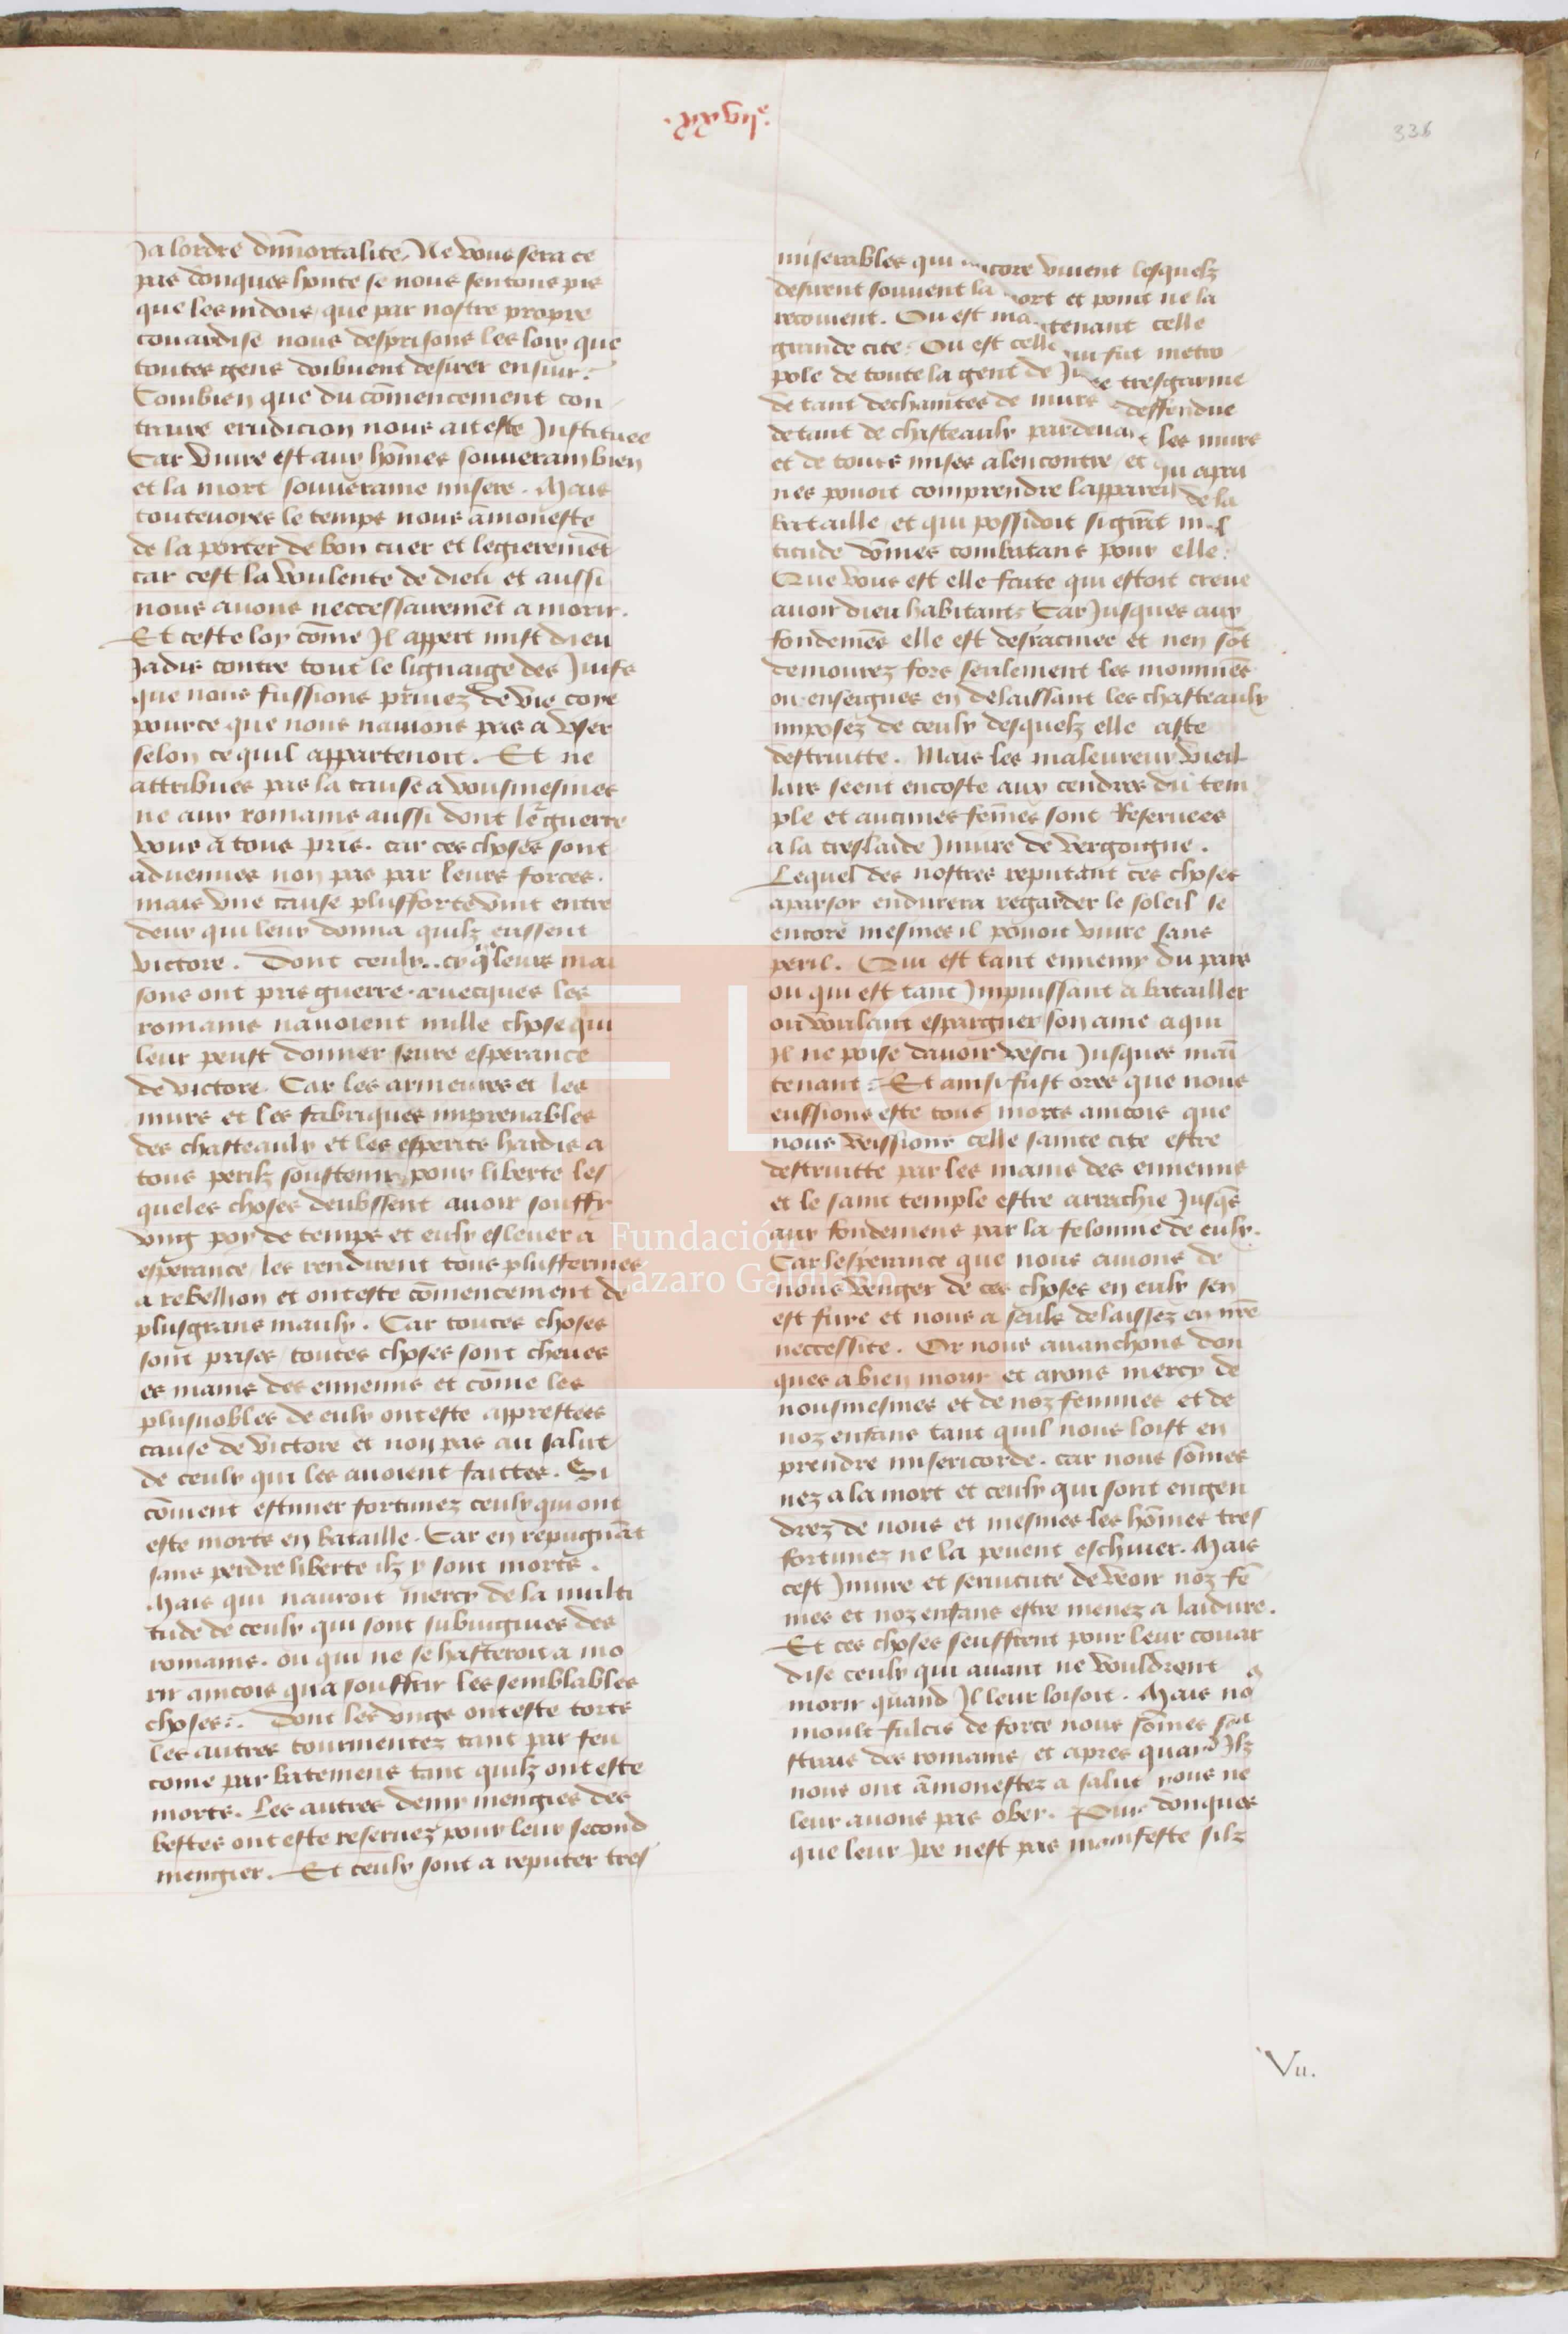 336
Ja lordre dim̄ortalite. Ne vous sera ce
pas donques honte se nous sentons pis
que les indois que par nostre propre
couardise nous desprisons les loix que
toutes gens doibuent desirer ensiuir?
Combien que du cōmencement con
traire erudicion nous ait este Instituee
Car viure est aux hōmes souuerain bien
et la mort souueraine misere. Mais
touteuoies le temps nous āmoneste
de la porter de bon cuer et legieremēt
car cest la voulente de dieu et aussi
nous auons neccessairemēt a morir.
Et ceste loy cōme Il appert mist dieu
Jadis contre tout le lignaige des Juifs
que nous fussions priuez de vie
pource que nous nauions pas a vser
selon ce quil appartenoit. Et ne
attribues pas la cause a vousmesmes
ne aux romains aussi dont le guerre
vous a tous pris. car ces choses sont
aduenues non pas par leurs forces.
mais vne cause plusforte vint entre
deux qui leur donna quilz eussent
victore. Dont ceulx
sons ont pris guerre auecques les
romains nauoient nulle chose qui
leur peust donner seure esperance
de victore. Car les armeures et les
murs et les fabriques imprenables
des chasteaulx et les esperits hardis a
tous perilz soustenir pour liberte les
queles choses deubssent auoir souffy
vng poy de temps et eulx esleuer a
esperance les rendirent tous plusfermes
a rebellion et ont este cōmencement de
plusgrans maulx. Car toutes choses
sont prises toutes choses sont cheues
es mains des ennemis et cōme les
plusnobles de eulx ont este apprestees
cause de victore et non pas au salut
de ceulx qui les auoient faittes. Si
cōuient estimer fortunez ceulx qui ont
este morts en bataille. Car en repugnāt
sans perdre liberte ilz y sont morts.
Mais qui nauroit mercy de la multi
tude de ceulx qui sont subiuguies des
romains. ou qui ne se hasteroit a mo
rir aincois qua souffrir les semblables
choses. Dont les vngs ont este torts
les autres tourmentez tant par feu
come par batemens tant quilz ont este
morts. Les autres demy mengies des
bestes ont este reseruez pour leur second
mengier. Et ceulx sont a reputer tres
miserables qui encore viuent lesquelz
desirent souuent la mort et point ne la
recoiuent. Ou est maintenant celle
grande cite. Ou est celle qui fut metro
pole de toute la gent de tresgarnie
de tant dechaintes de murs deffendue
de tant de chasteaulx pardeuant les murs
et de tours mises alencontre et qui a pai
nes pouoit comprendre lappareil de la
bataille et qui possidoit si grāt mul
titude dōmes combatans pour elle.
Que vous est elle faite qui estoit creue
auoir dieu habitant. Car Jusques aux
fondemēs elle est desracinee et nen sōt
demourez fors seulement les
ou enseignes en delaissant les chasteaulx
imposez de ceulx desquelz elle a este
destruitte. Mais les maleureux vieil
lars seent encoste aux cendres du tem
ple et aucunes fem̄es sont Reseruees
a la treslaide Iniure de vergoigne.
Lequel des nostres reputant ces choses
aparsoy endurera regarder le soleil se
encore mesmes il pouoit viure sans
peril. Qui est tant ennemy du pais
ou qui est tant Impuissant a batailler
ou voulant espargner son ame a qui
Il ne poise dauoir vescu Jusques main
tenant. Et ainsi fust ores que nous
eussions este tous morts aincois que
nous veissions celle sainte cite estre
destruitte par les mains des ennemis
et le saint temple estre arrachie Jusq̄s
aux fondemens par la felonnie de eulx.
Car lesperance que nous auions de
nous venger de ces choses en eulx sen
est fuie et nous a seuls delaissez en nr̄e
neccessite. Or nous auanchons don
ques a bien mourir et ayons mercy de
nousmesmes et de noz femmes et de
noz enfans tant quil nous loist en
prendre misericorde. car nous sōmes
nez a la mort et ceulx qui sont engen
drez de nous et mesmes les hōmes tres
fortunez ne la peuent eschiuer. Mais
cest Iniure et seruitute de veoir noz fē
mes et noz enfans estre menez a laidure.
Et ces choses seuffrent pour leur couar
dise ceulx qui auant ne vouldrent
morir quand Il leur loisoit. Mais no9
moult fulcis de force nous sōmes
strais des romains et apres quand Ilz
nous ont āmonestez a salut nous ne
leur auons pas obey. Puis donques
que leur Ire nest pas manifeste silz
Vu.
FLG
Fundación
Lázaro Galdiano